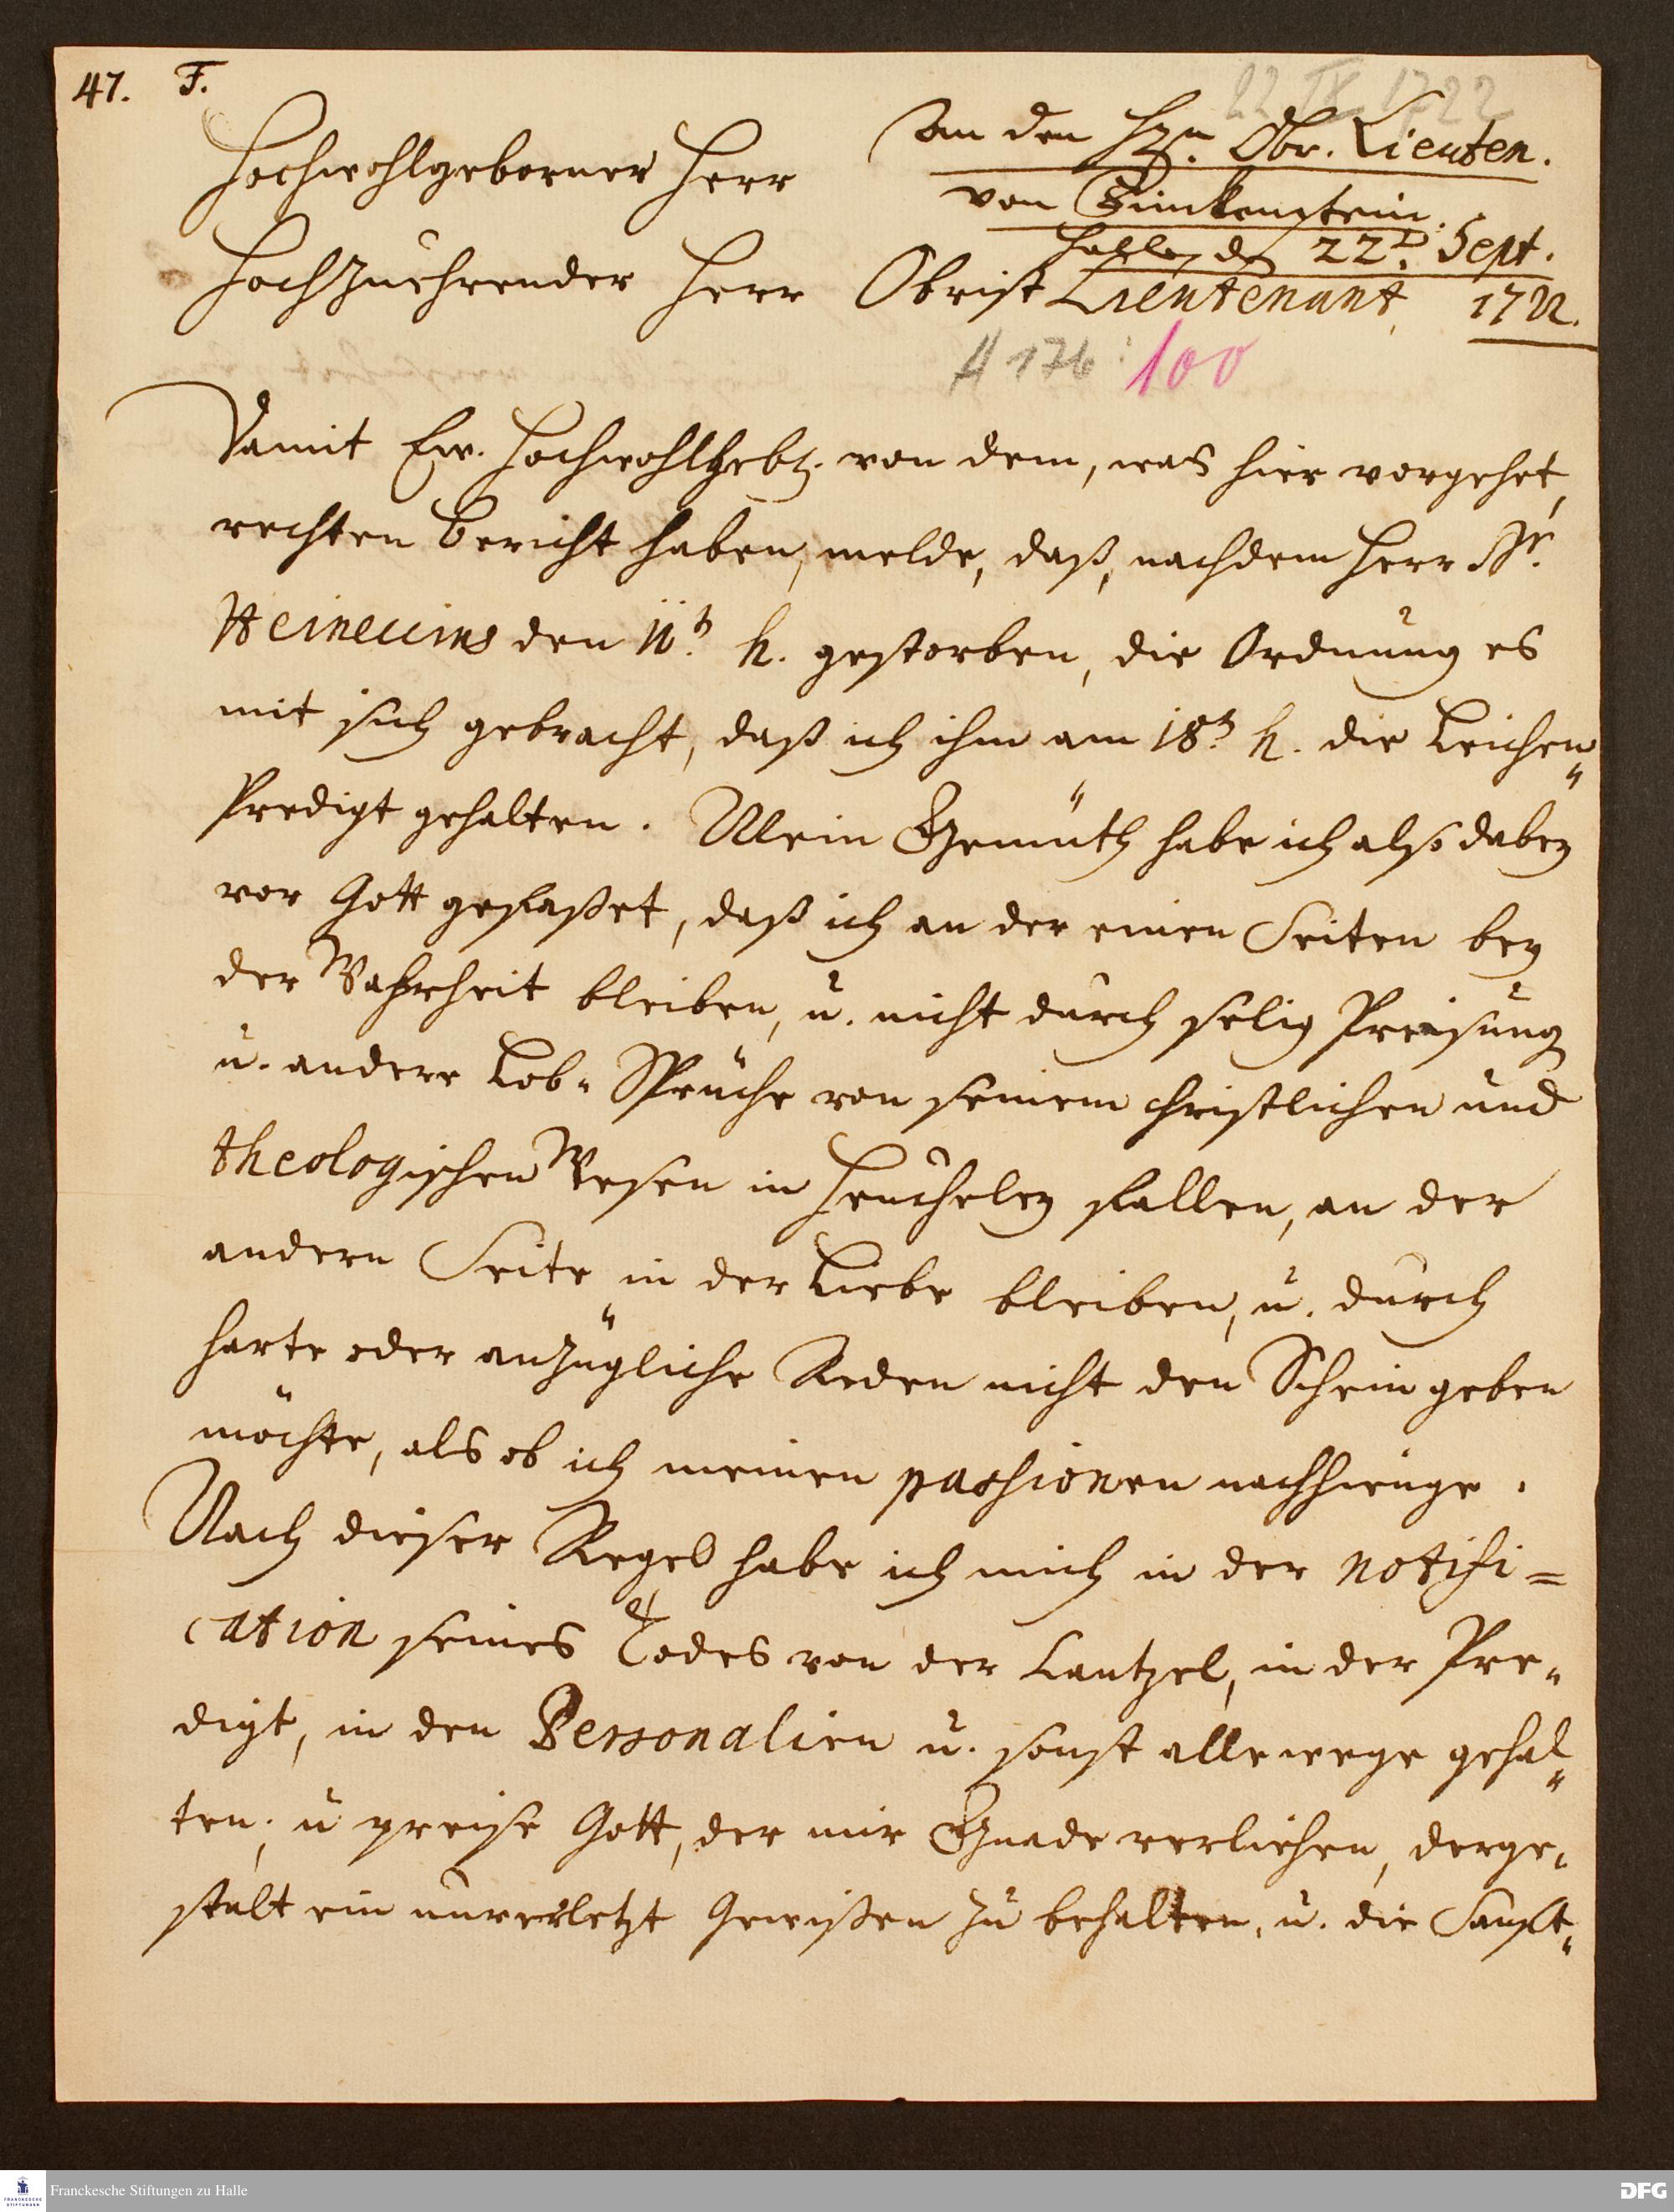 47. F.
22 IX 1722
an den Hrn. Obr. Lieuten.
von Finckenstein.
Halle, d. 22. Sept.
1722.
Hochwohlgeborner Herr
Hochzuehrender Herr Obrist Lieutenant,
A 176 : 100
Damit Ew. Hochwohlgeb. von dem, was hier vorgehet,
rechten Bericht haben, melde, daß, nachdem Herr D.
Heineccius den 11t. h. gestorben, die Ordnung es
mit sich gebracht, daß ich ihm am 18t. h. die Leichen-
Predigt gehalten. Mein Gemüth habe ich also dabey
vor Gott gefaßet, daß ich an der einen Seiten bey
der Wahrheit bleiben, u. nicht durch selig Preisung
u. andere Lob-Sprüche von seinem christlichen und
theologischen Wesen in Heucheley fallen, an der
andern Seite in der Liebe bleiben, u. durch
harte oder anzügliche Reden nicht den Schein geben
möchte, als ob ich meinen passionen nachhienge.
Nach dieser Regel habe ich mich in der notifi=
cation seines Todes von der Cantzel, in der Pre-
digt, in den Personalien u. sonst allewege gehal-
ten, u preise Gott, der mir Gnade verliehen, derge-
stalt ein unverletzt Gewißen zu behalten, u. die Sanft-
Franckesche Stiftungen zu Halle
FRANCKESCHE STIFTUNGEN
DFG